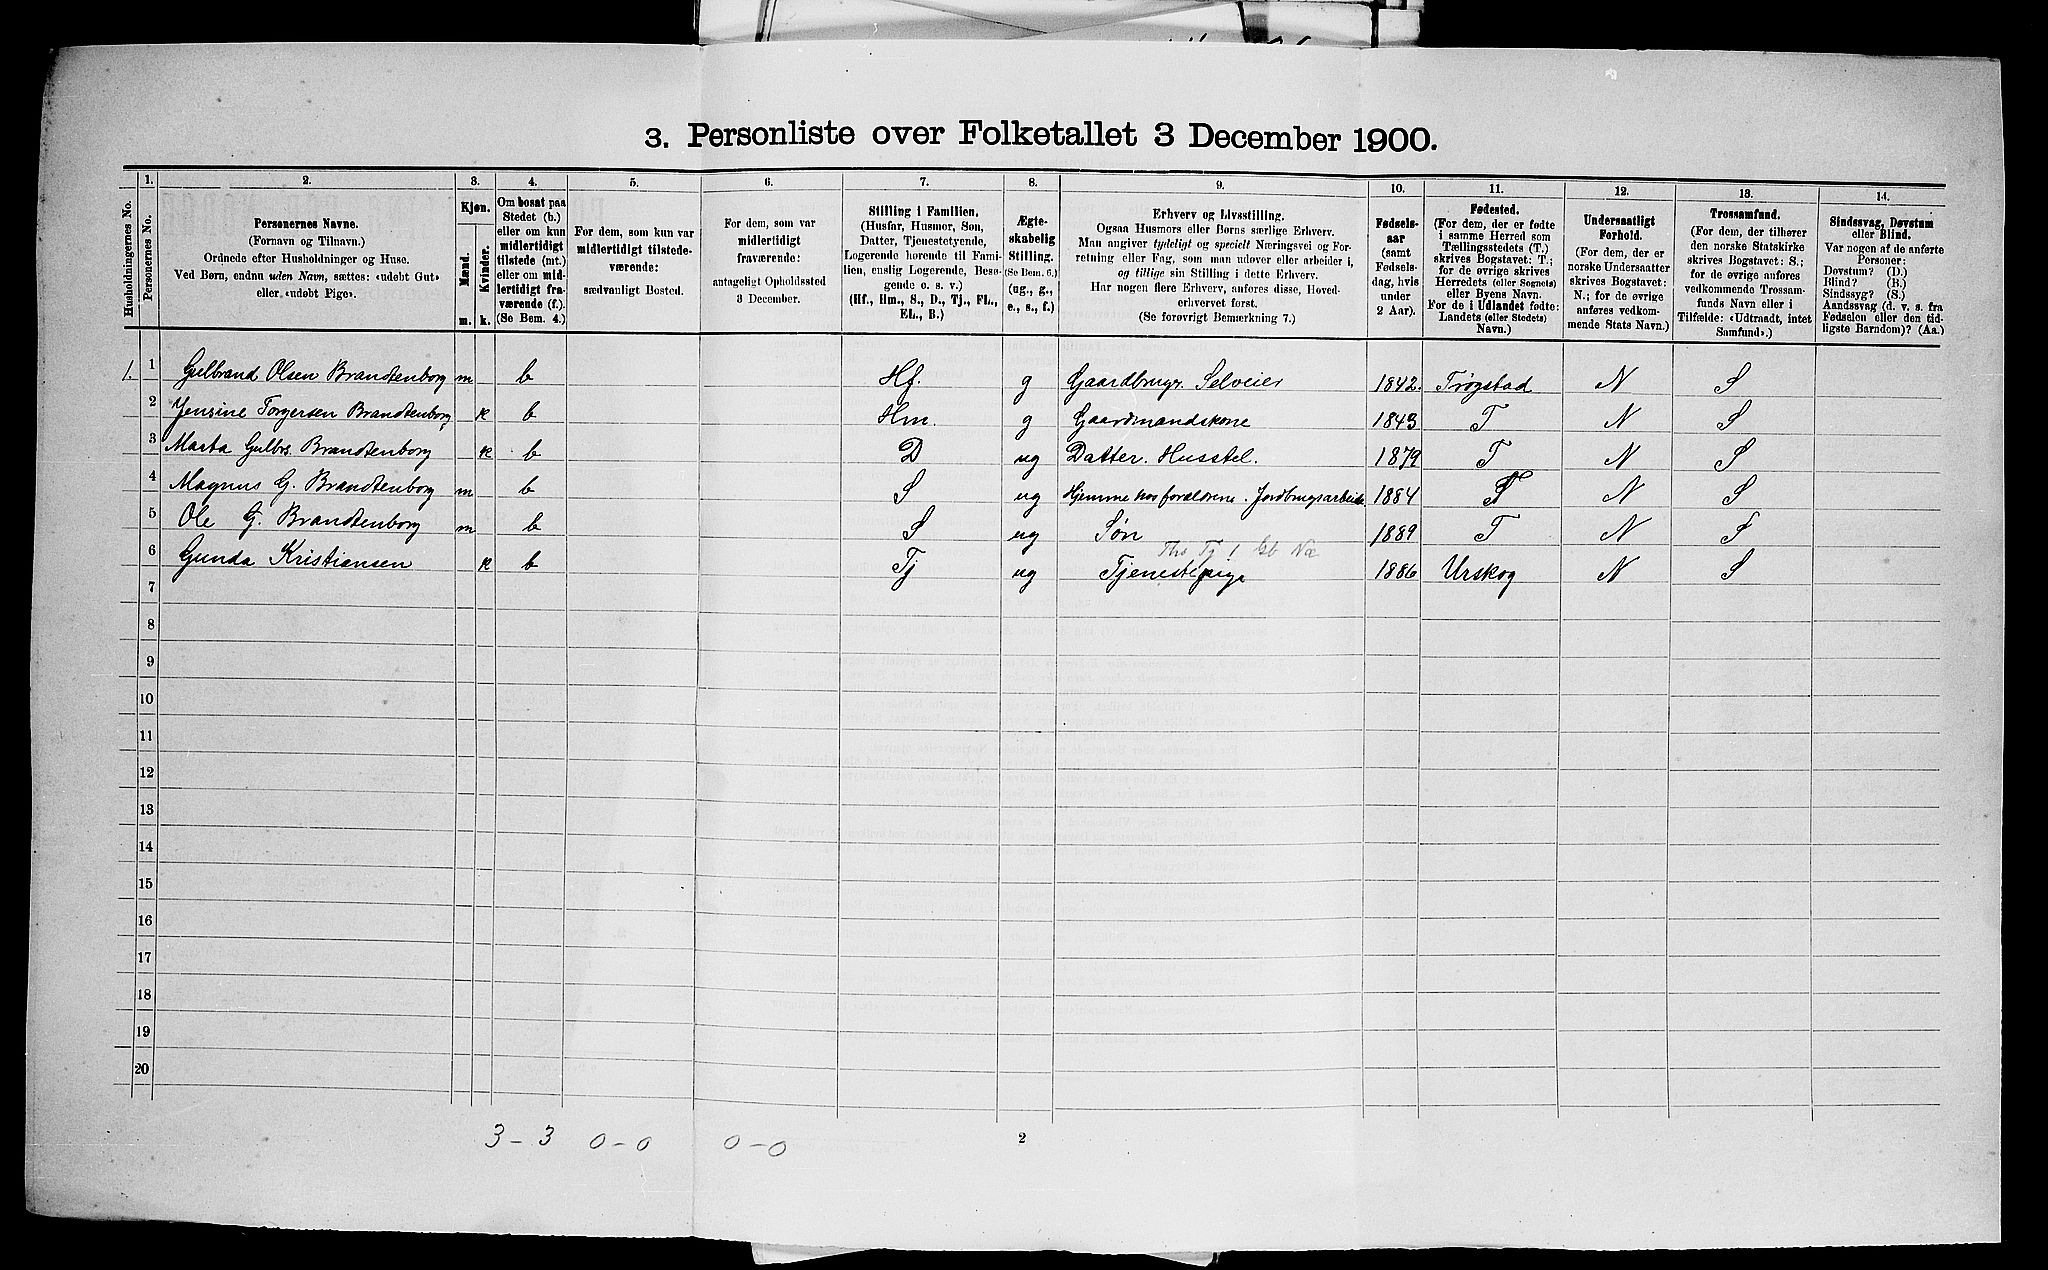 3. Personliste over Folketallet 3 December 1900.
1. 2. 3. 4. 5. 6. 7. 8. 9. 10. 11. 12. 13. 14.
Husholdningernes No.
Personernes No.
Personernes Navne.
(Fornavn og Tilnavn.)
Ordnede efter Husholdninger og Huse.
Ved Børn, endnu uden Navn, sættes: «udøbt Gut»
eller „udøbt Pige».
Kjøn.
Mænd.
Kvinder.
m. k.
Om bosat paa
Stedet (b.)
eller om kun
midlertidigt
tilstede (mt.)
eller om mid-
lertidigt fra-
værende (f.)
(Se Bem. 4.)
For dem, som kun var
midlertidigt tilstede-
værende:
sædvanligt Bosted.
For dem, som var
midlertidigt
fraværende:
antageligt Opholdssted
3 December.
Stilling i Familien.
(Husfar, Husmor, Søn,
Datter, Tjenestetyende,
Logerende hørende til Fami-
lien, enslig Logerende, Besø-
gende o. s. v.)
(Hf., Hm., S., D., Tj., FL.,
EL., B.)
Ægte-
skabelig
Stilling.
(Se Bem. 6.)
(ug., g.,
e., s., f.)
Erhverv og Livsstilling.
Ogsaa Husmors eller Børns særlige Erhverv.
Man angiver tydeligt og specielt Næringsvei og For-
retning eller Fag, som man udøver eller arbeider i,
og tillige sin Stilling i dette Erhverv.
Har nogen flere Erhverv, anføres disse, Hoved-
erhvervet først.
(Se forøvrigt Bemærkning 7.)
Fødsels-
aar
(samt
Fødsels-
dag, hvis
under
2 Aar).
Fødested.
(For dem, der er fødte
i samme Herred som
Tællingsstedets (T.)
skrives Bogstavet: T.;
for de øvrige skrives
Herredets (eller Sognets)
eller Byens Navn.
For de i Udlandet fødte:
Landets (eller Stedets)
Navn.)
Undersaatligt
Forhold.
(For dem, der er
norske Undersaatter
skrives Bogstavet:
N.; for de øvrige
anføres vedkom-
mende Stats Navn.)
Trossamfund.
(For dem, der tilhører
den norske Statskirke
skrives Bogstavet: S.;
for de øvrige anføres
vedkommende Trossam-
funds Navn eller i
Tilfælde: «Udtraadt, intet
Samfund».)
Sindssvag, Døvstum
eller Blind.
Var nogen af de anførte
Personer:
Døvstum? (D.)
Blind? (B.)
Sindssyg? (S.)
Aandssvag (d. v. s. fra
Fødselen eller den tid-
ligste Barndom)? (Aa.)
1. 1 Gulbrand Olsen Brandtenborg m b Hf. g Gaardbrugr. Selveier 1842. Trøgstad N S
2 Jensine Torgersen Brandtenborg k b Hm. g Gaardmandskone 1843 T N S
3 Marta Gulbrs. Brandtenborg k b D ug Datter. Husstel. 1879 T N S
4 Magnus G. Brandtenborg m b S ug Hjemme hos forældrene. Jordbrugsarbeide. 1884 T N S
5 Ole G. Brandtenborg m b S ug Søn 1889 T N S
Tj 1 Gb
6 Gunda Kristiansen k b Tj ug Tjenestepige 1886 Urskog N S
7
8
9
10
11
12
13
14
15
16
17
18
19
20
3 - 3 0 - 0 0 - 0 2